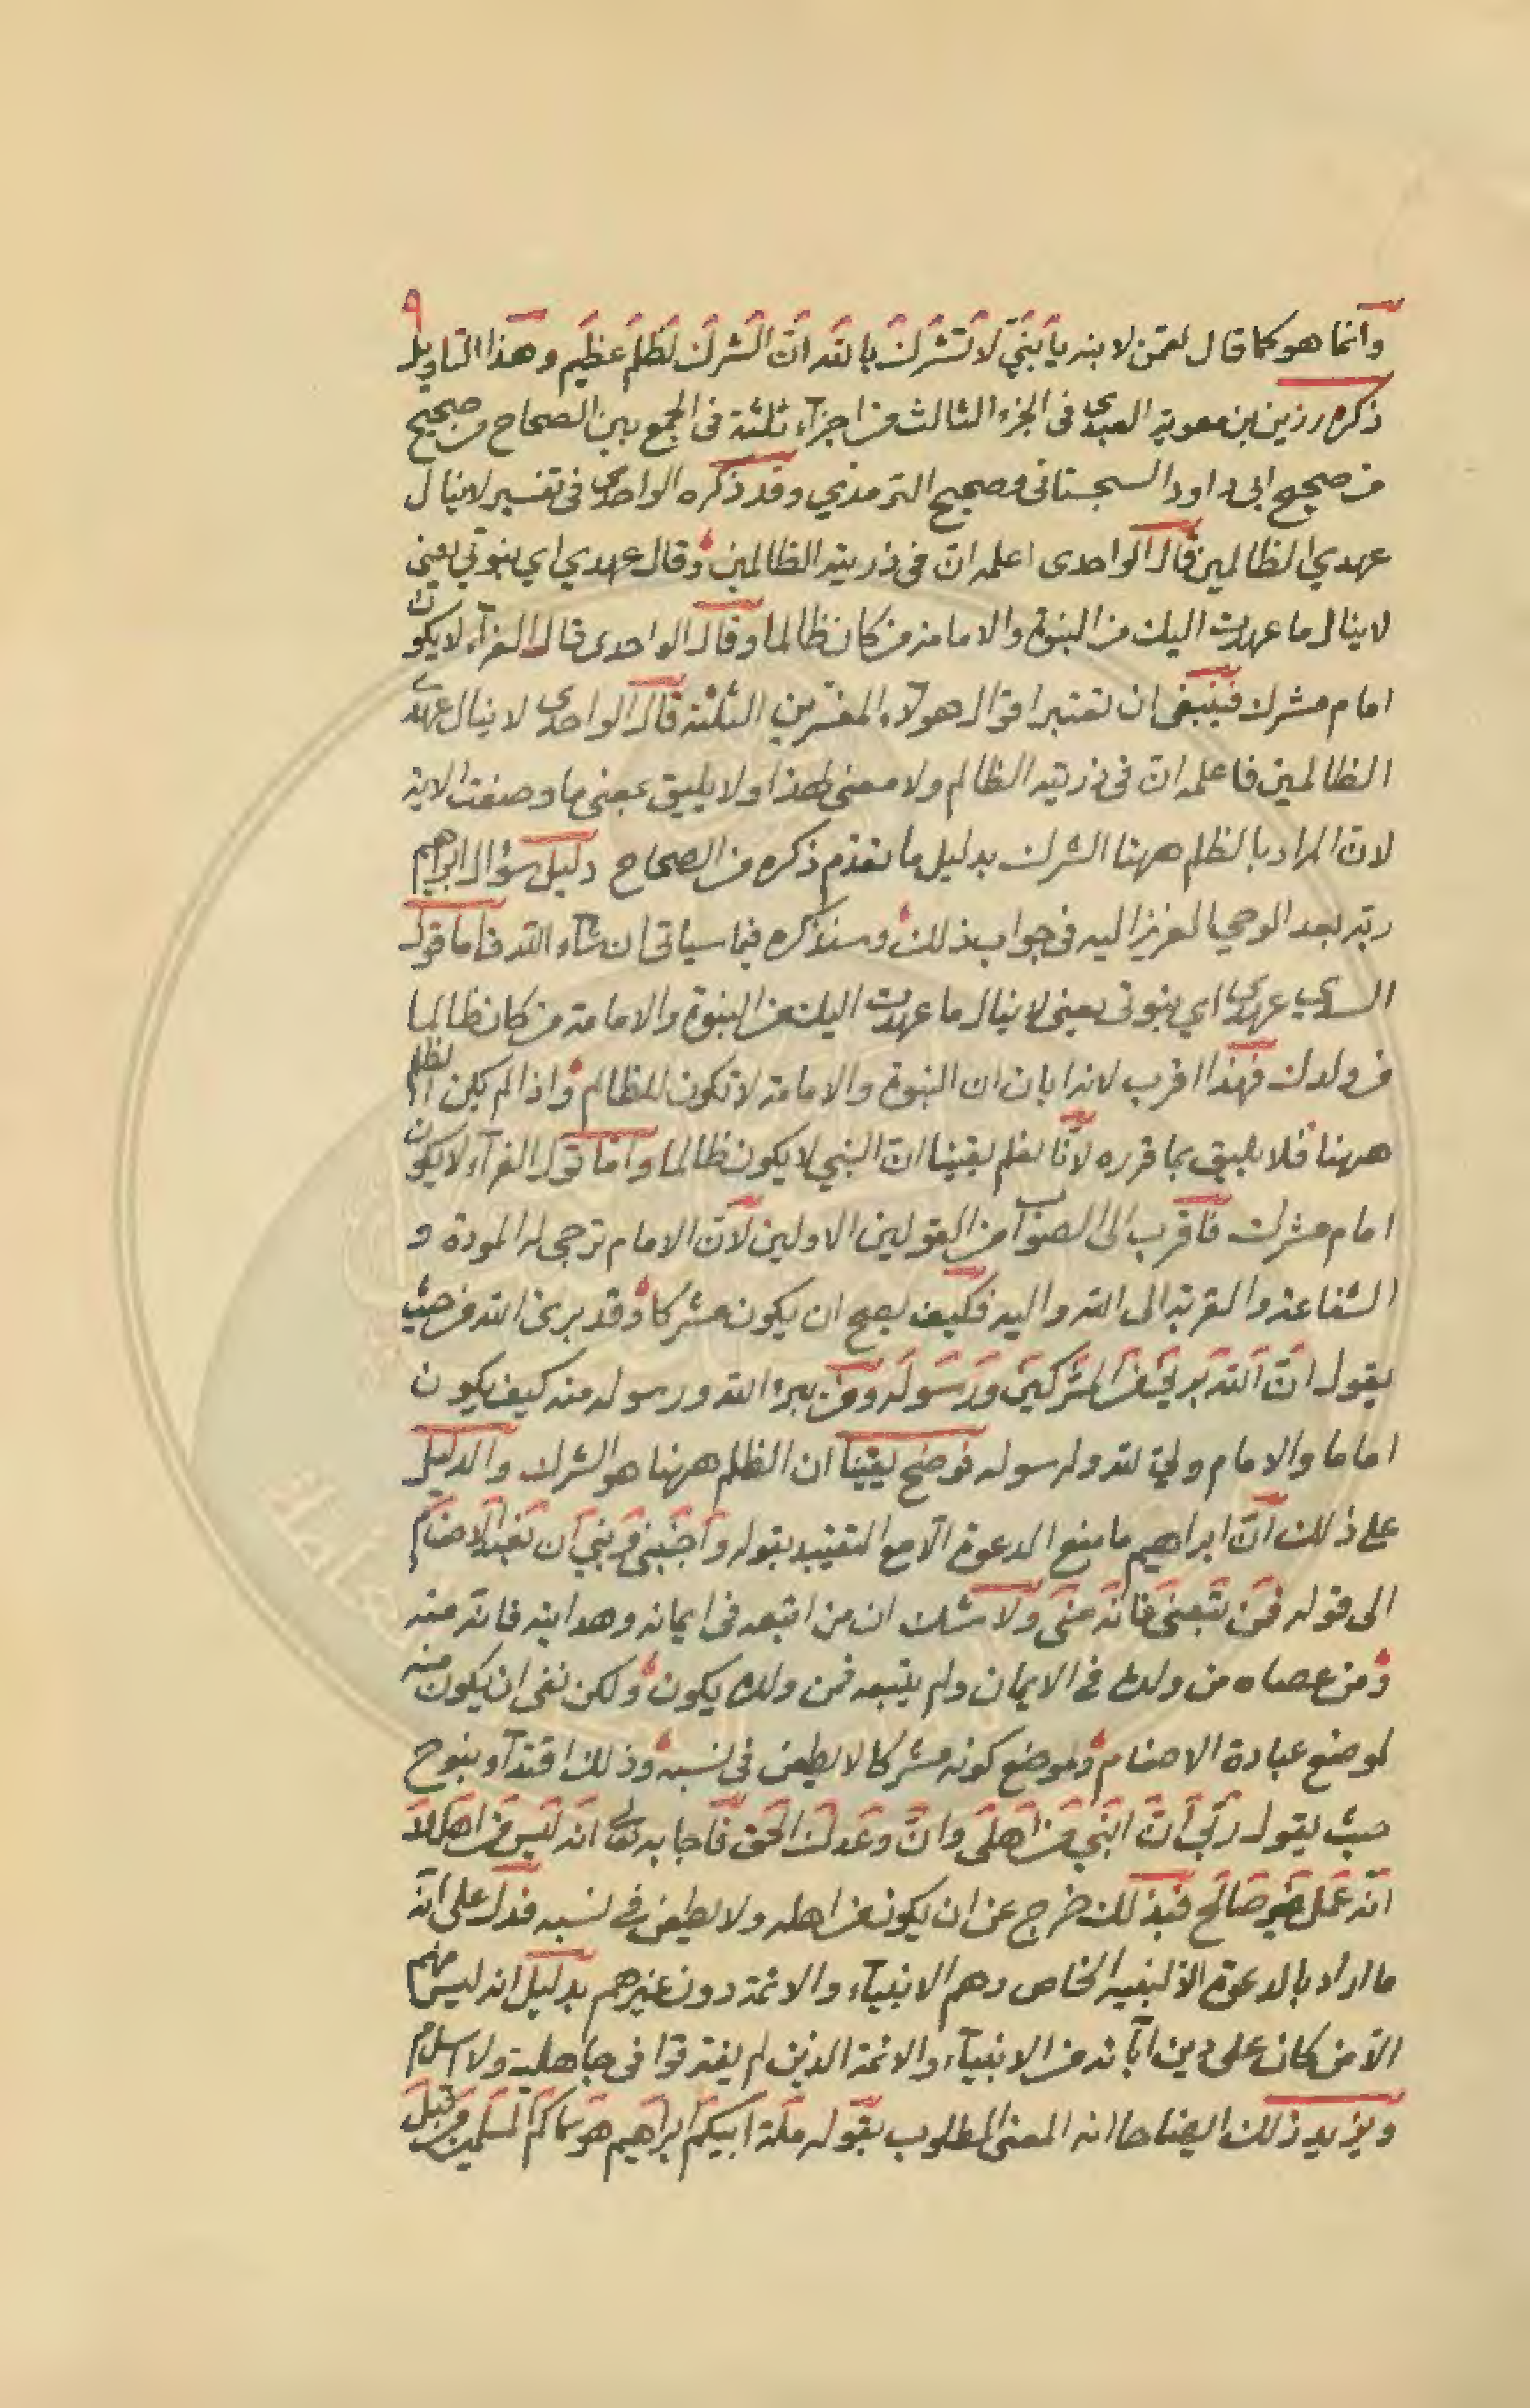 ٩
وانما هو كما قال لقمن لابنه يا بني لا تشرك بالله ان الشرك لظلم عظيم وهذا التاويل
ذكره رزين بن معوية العبدى فى الجزء الثالث من اجزآء ثلثة فى الجمع بين الصحاح من صحيح
من صحيح ابى داود السجستانى وصحيح الترمذي وقد ذكره الواحدى فى تفسير لا ينال
عهدي الظالمين قال الواحدى اعلمه ان فى ذريته الظالمين وقال عهدي اي بنوتي يعنى
لا ينال ما عهدت اليك من النبوة والامامة من كان ظالما وقال الواحدى قال الفرآء لا يكون
امام مشرك فينبغى ان تعتبر اقوال هولآء المفسرين الثلثة قال الواحدى لا ينال عهدى
الظالمين فاعلمه ان فى ذريته الظالم ولا معنى لهذا ولا يليق بمعنى ما وصفت الاية
لان المراد بالظلم ههنا الشرك بدليل ما تقدم ذكره من الصحاح دليل سؤال ابراهيم
ربه بعد الوحي العزيز اليه فى جواب ذلك وسنذكره فيما سياتى ان شآء الله فاما قول
السدي عهدى اي بنوتى يعنى لا ينال ما عهدت اليك من النبوة والامامة من كان ظالما
من ولدك فهذا اقرب لانه ابان ان النبوة والامامة لا تكون للظالم واذا لم يكن الظلم
ههنا فلا يليق بما قرره لانا نعلم يقينا ان النبي لا يكون ظالما واما قول الفرآء لا يكون
امام مشرك فاقرب الى الصواب من القولين الاولين لان الامام ترجى له المودة و
الشفاعة والقربة الى الله واليه فكيف يصح ان يكون مشركا وقد برئ الله من حيث
يقول ان الله برئ من المشركين ورسوله ومن يبرء الله ورسوله منه كيف يكون
اماما والامام ولي لله ولرسوله فوضح يقينا ان الظلم ههنا هو الشرك والدليل
على ذلك ان ابراهيم ما منع الدعوة الا مع التقييد بقوله واجنبنى وبني ان نعبد الاصنام
الى قوله فمن تبعنى فانه منى ولا شك ان من اتبعه فى ايمانه وهدايته فانه منه
ومن عصاه من ولده فى الايمان ولم يتبعه فمن ولده يكون ولكن نفى ان يكون منه
لموضع عبادة الاصنام ولموضع كونه مشركا لا يطعن فى نسبه وذلك اقتدآء بنوح
حيث يقول رب ان ابنى من اهلى وان وعدك الحق فاجابه تعالى انه ليس من اهلك
انه عمل غير صالح فبذلك خرج عن ان يكون من اهله ولا يطعن فى نسبه فدل على انه
ما اراد بالدعوة الا لبنيه الخاص وهم الانبيآء والائمة دون غيرهم بدليل انه ليس منهم
الا من كان على دين ابآئه من الانبيآء والائمة الذين لم يفترقوا فى جاهلية ولا اسلام
ويزيد ذلك ايضاحا انه المعنى المطلوب بقوله ملة ابيكم ابراهيم هو سماكم المسلمين من قبل